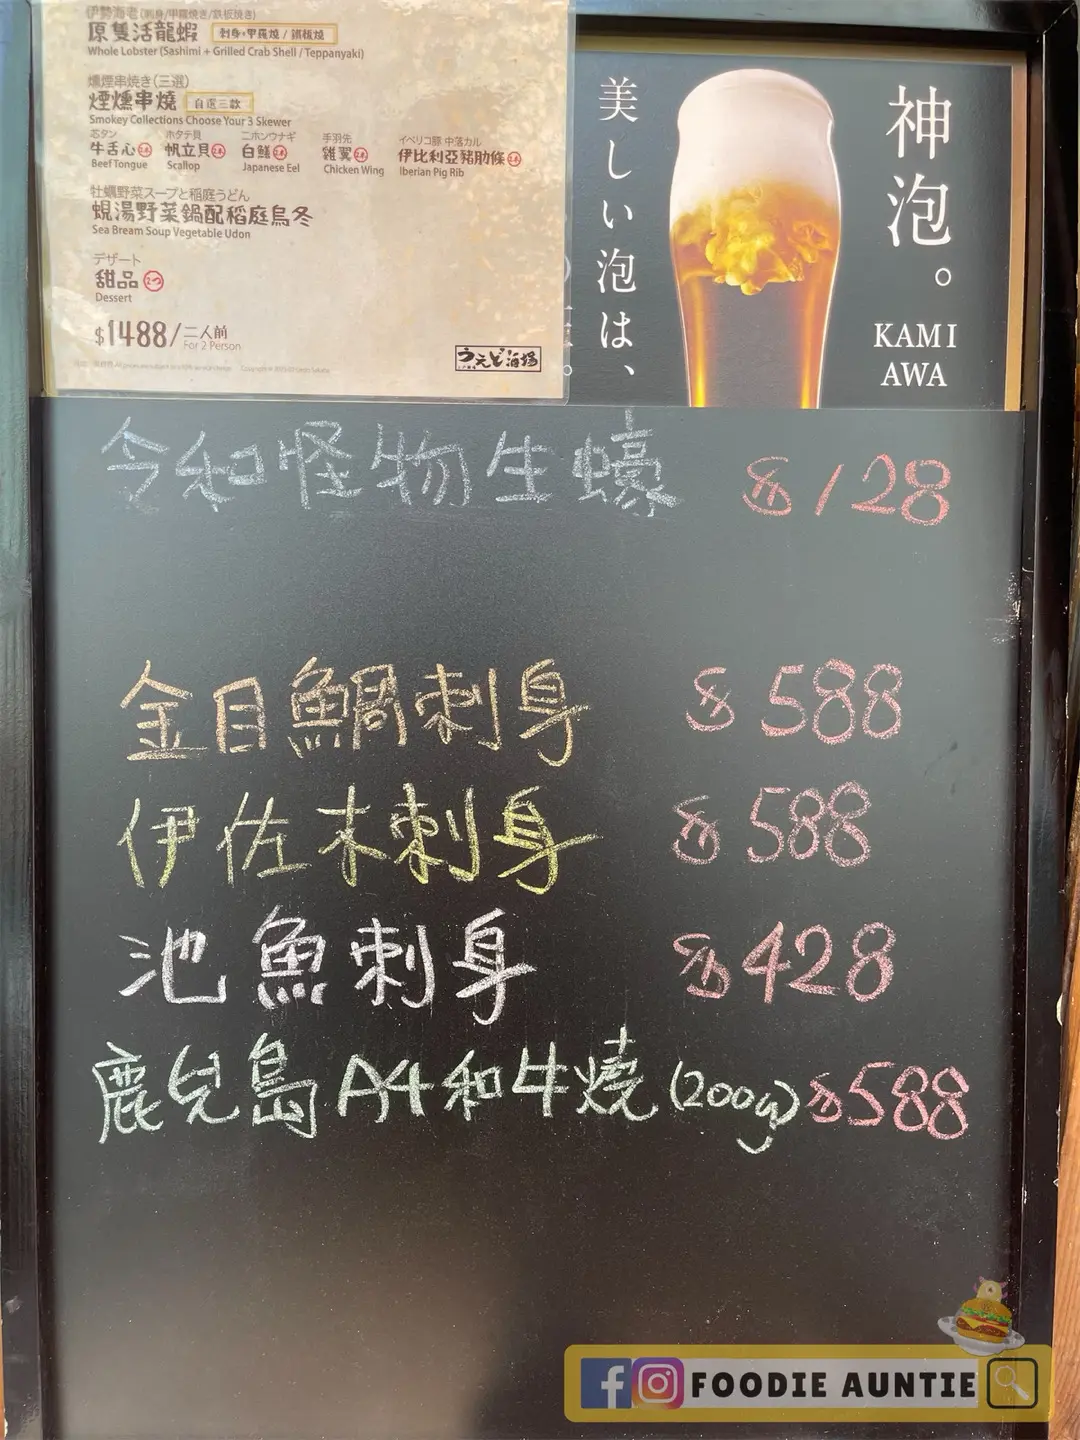 伊勢海老 (刺身/甲羅焼き/鉄板焼き)
原隻活龍蝦 刺身+甲羅燒 / 鐵板燒
Whole Lobster (Sashimi + Grilled Crab Shell / Teppanyaki)
燻煙串焼き(三選)
煙燻串燒 自選三款
Smokey Collections Choose Your 3 Skewer
芯タン ホタテ貝 ニホンウナギ 手羽先 イベリコ豚 中落カル
牛舌心 2本 帆立貝 2本 白鱔 2本 雞翼 2本 伊比利亞豬肋條 2本
Beef Tongue Scallop Japanese Eel Chicken Wing Iberian Pig Rib
牡蠣野菜スープと稲庭うどん
蜆湯野菜鍋配稻庭烏冬
Sea Bream Soup Vegetable Udon
デザート
甜品 2つ
Dessert
$1488/二人前
For 2 Person
うえど酒場
神泡。
美しい泡は、
KAMI
AWA
令和怪物生蠔 $128
金目鯛刺身 $588
伊佐木刺身 $588
池魚刺身 $428
鹿兒島A4和牛燒(200g) $588
FOODIE AUNTIE